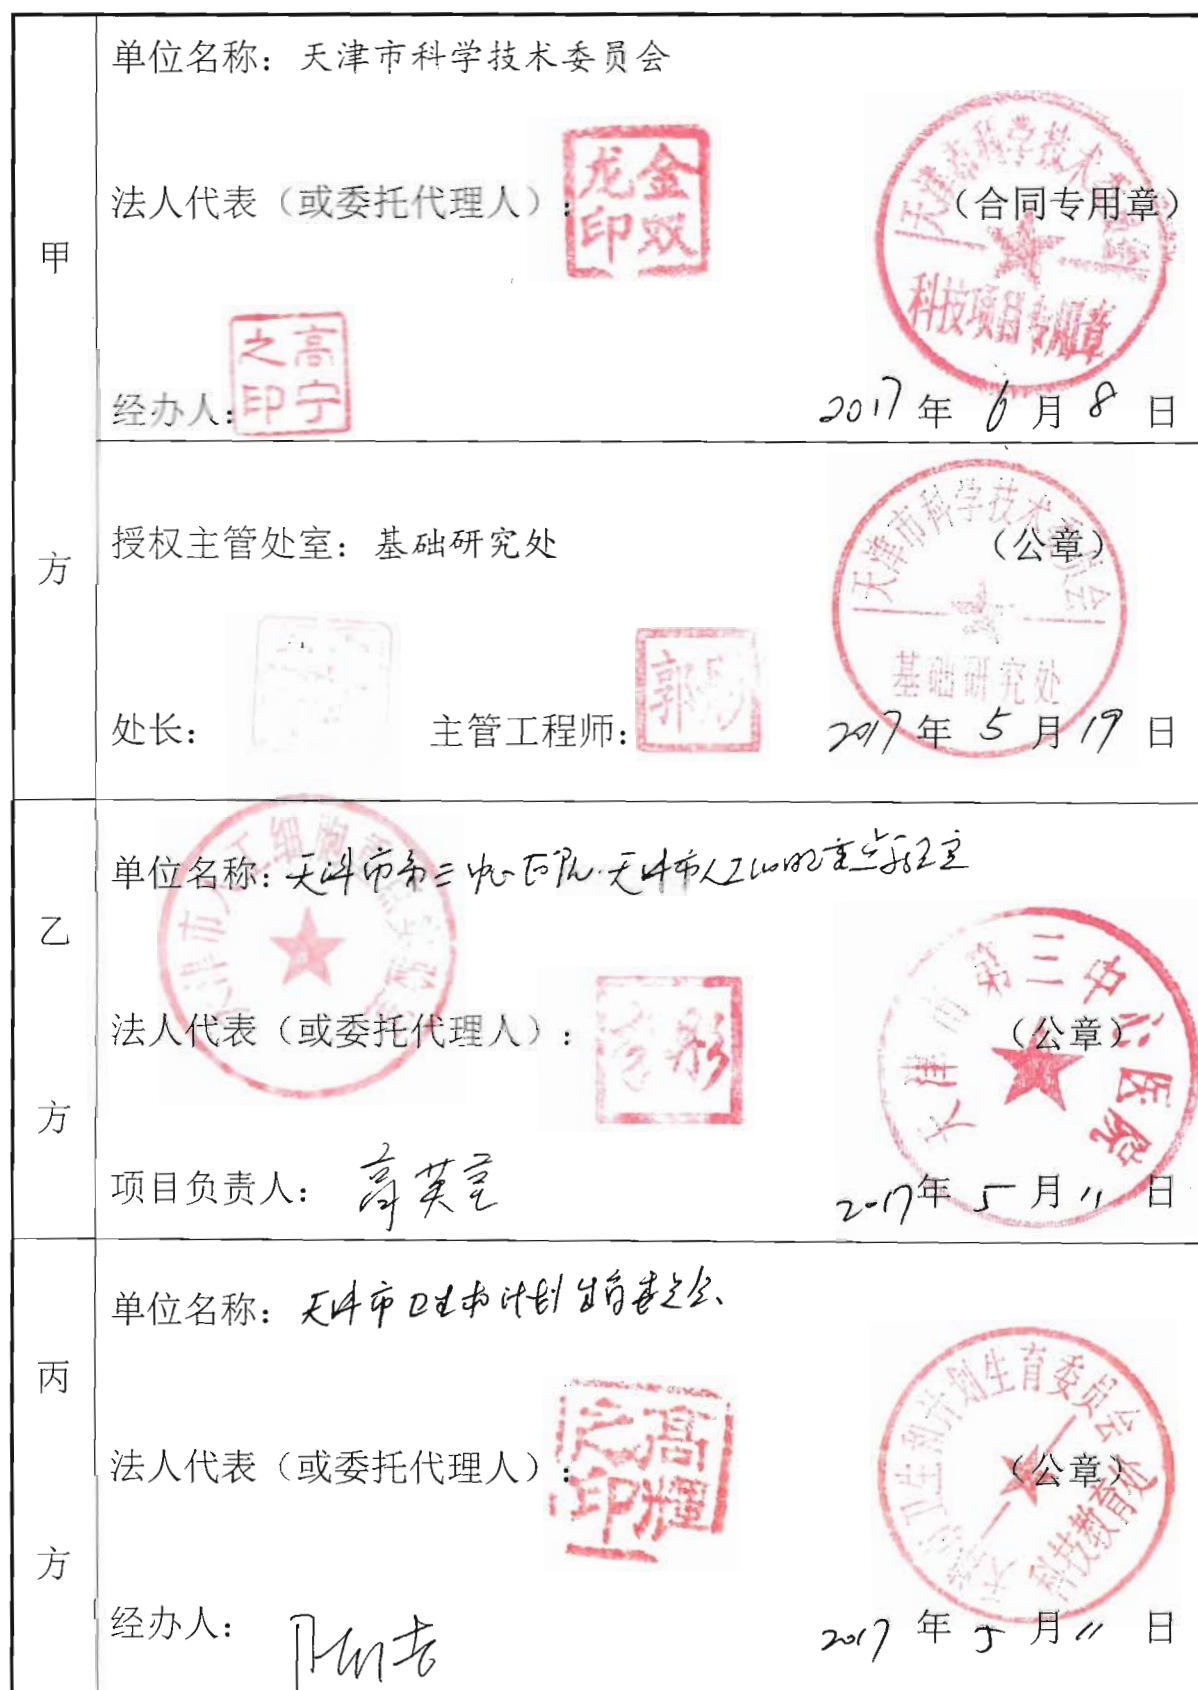 甲方
单位名称：天津市科学技术委员会
法人代表（或委托代理人）：
金双龙印
（合同专用章）
天津市科学技术委员会
科技项目专用章
经办人：
高宁之印
2017年6月8日
授权主管处室：基础研究处
（公章）
天津市科学技术委员会
基础研究处
处长：
主管工程师：
郭彤
2017年5月19日
乙方
单位名称：天津市第三中心医院.天津市人工细胞重点实验室
天津市人工细胞重点实验室
法人代表（或委托代理人）：
李彤
（公章）
天津市第三中心医院
项目负责人：高英堂
2017年5月11日
丙方
单位名称：天津市卫生和计划生育委员会
法人代表（或委托代理人）：
高辉之印
（公章）
天津市卫生和计划生育委员会
科技教育处
经办人：
2017年5月11日